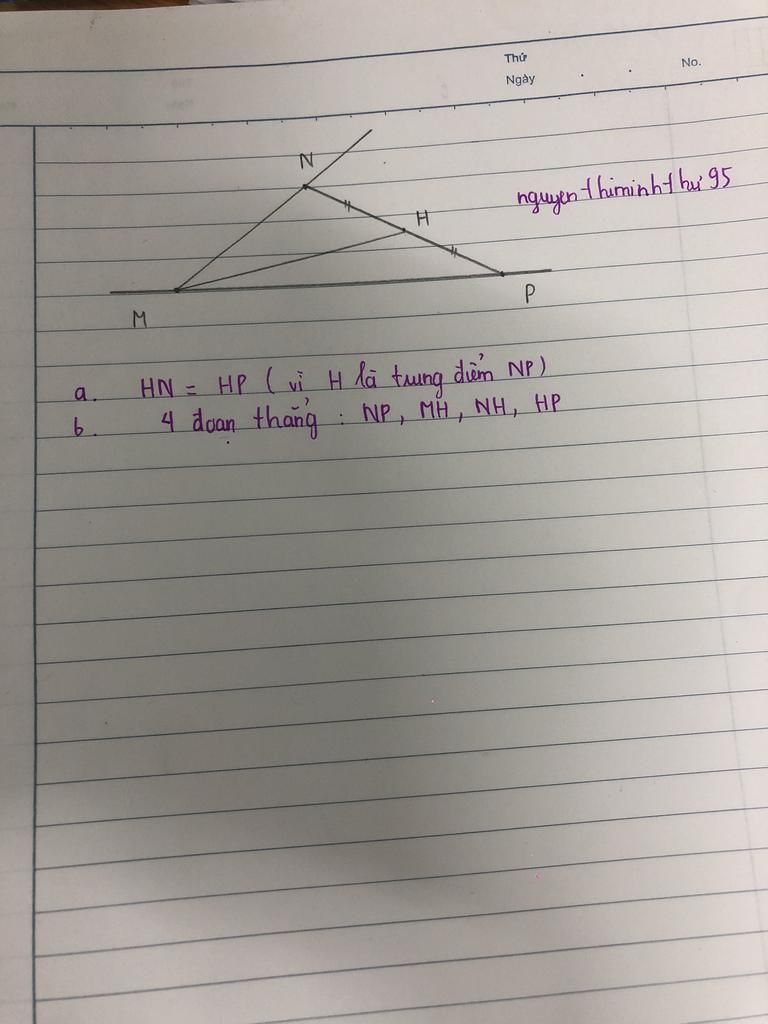 Thứ
Ngày . . No.
N
nguyenthiminhthư95
H
P
M
a. HN = HP ( vì H là trung điểm NP)
b. 4 đoạn thẳng : NP, MH, NH, HP